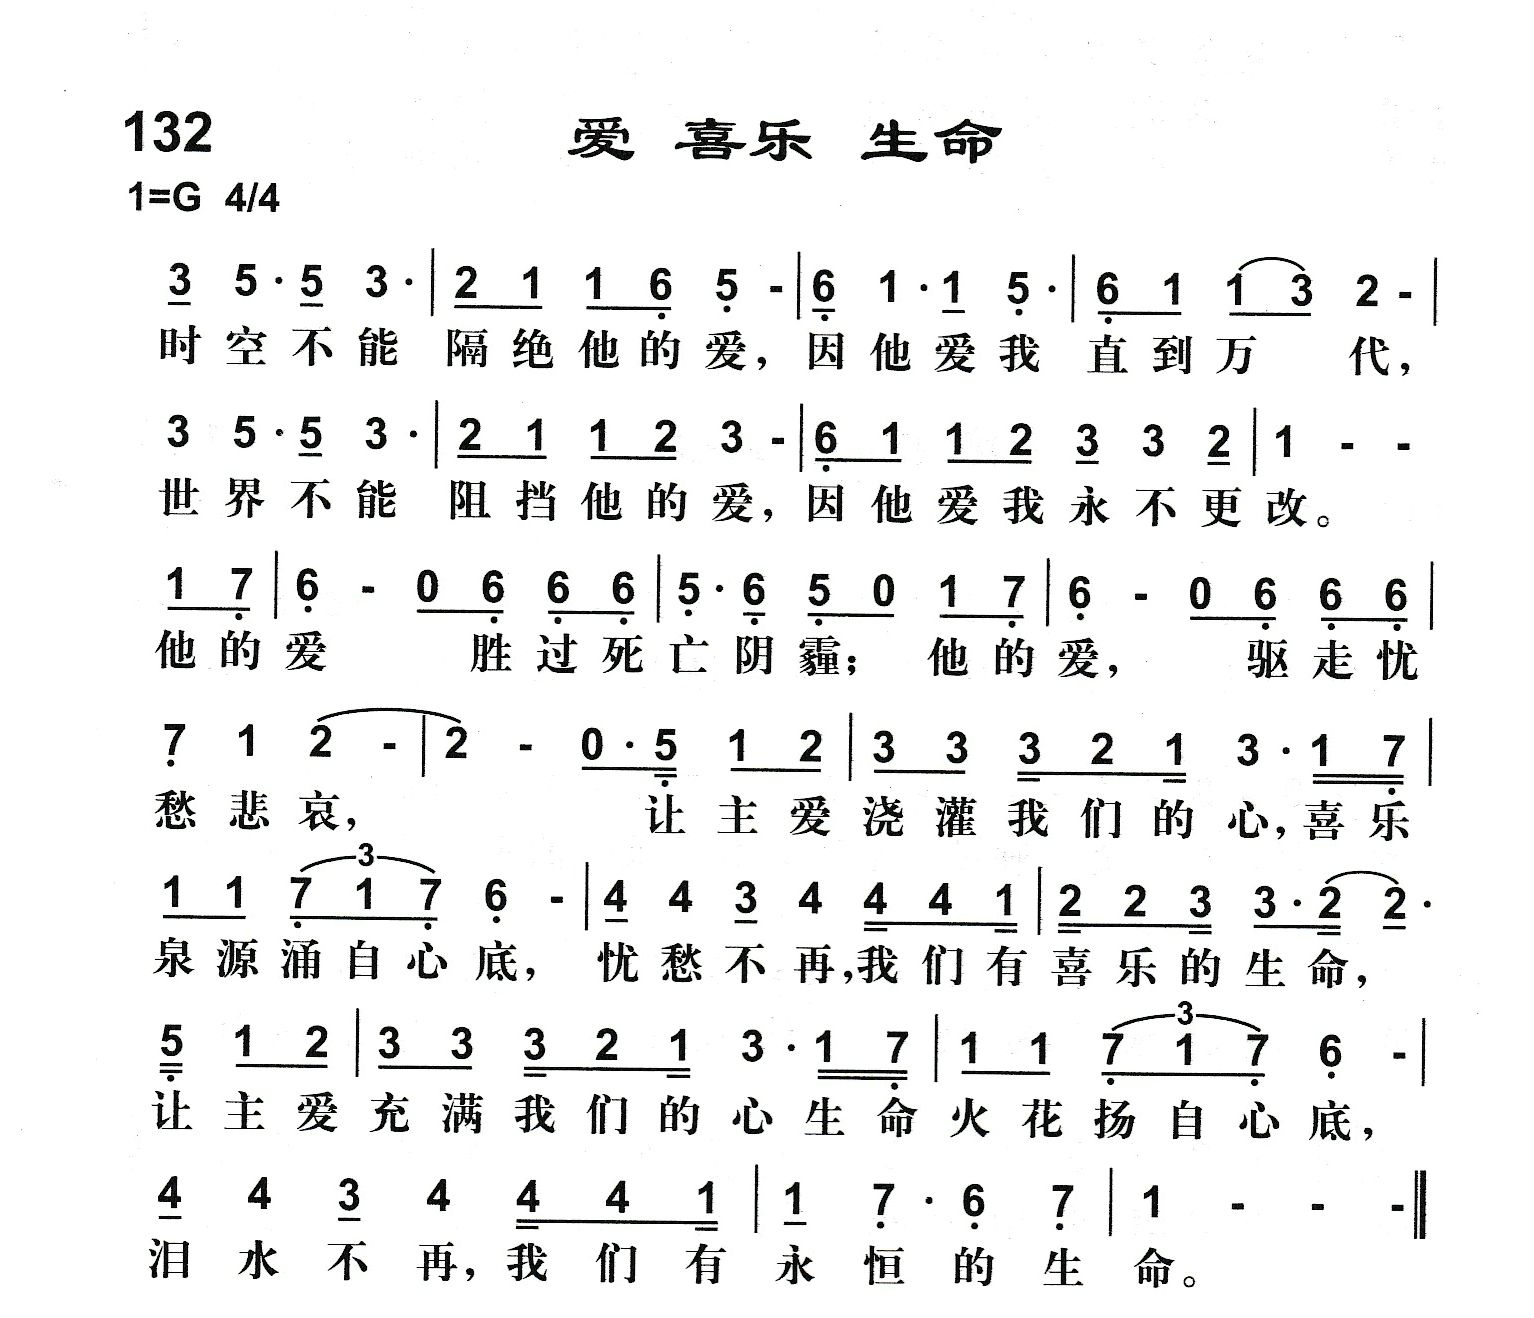 132 爱 喜乐 生命
1=G 4/4
3 5· 5 3· | 2 1 1 6 5 - | 6 1· 1 5· | 6 1 1 3 2 - |
时空不能 隔绝他的爱，因他爱我 直到万 代，
3 5· 5 3· | 2 1 1 2 3 - | 6 1 1 2 3 3 2 | 1 - -
世界不能 阻挡他的爱，因他爱我永不更改。
1 7 | 6 - 0 6 6 6 | 5· 6 5 0 1 7 | 6 - 0 6 6 6 |
他的爱 胜过死亡阴霾； 他的爱， 驱走忧
7 1 2 - | 2 - 0· 5 1 2 | 3 3 3 2 1 3· 1 7 |
愁悲哀， 让主爱浇灌我们的心，喜乐
3
1 1 7 1 7 6 - | 4 4 3 4 4 4 1 | 2 2 3 3· 2 2·
泉源涌自心底， 忧愁不再，我们有喜乐的生命，
3
5 1 2 | 3 3 3 2 1 3· 1 7 | 1 1 7 1 7 6 - |
让主爱充满我们的心生命火花扬自心底，
4 4 3 4 4 4 1 | 1 7· 6 7 | 1 - - -
泪水不再，我们有永恒的生命。